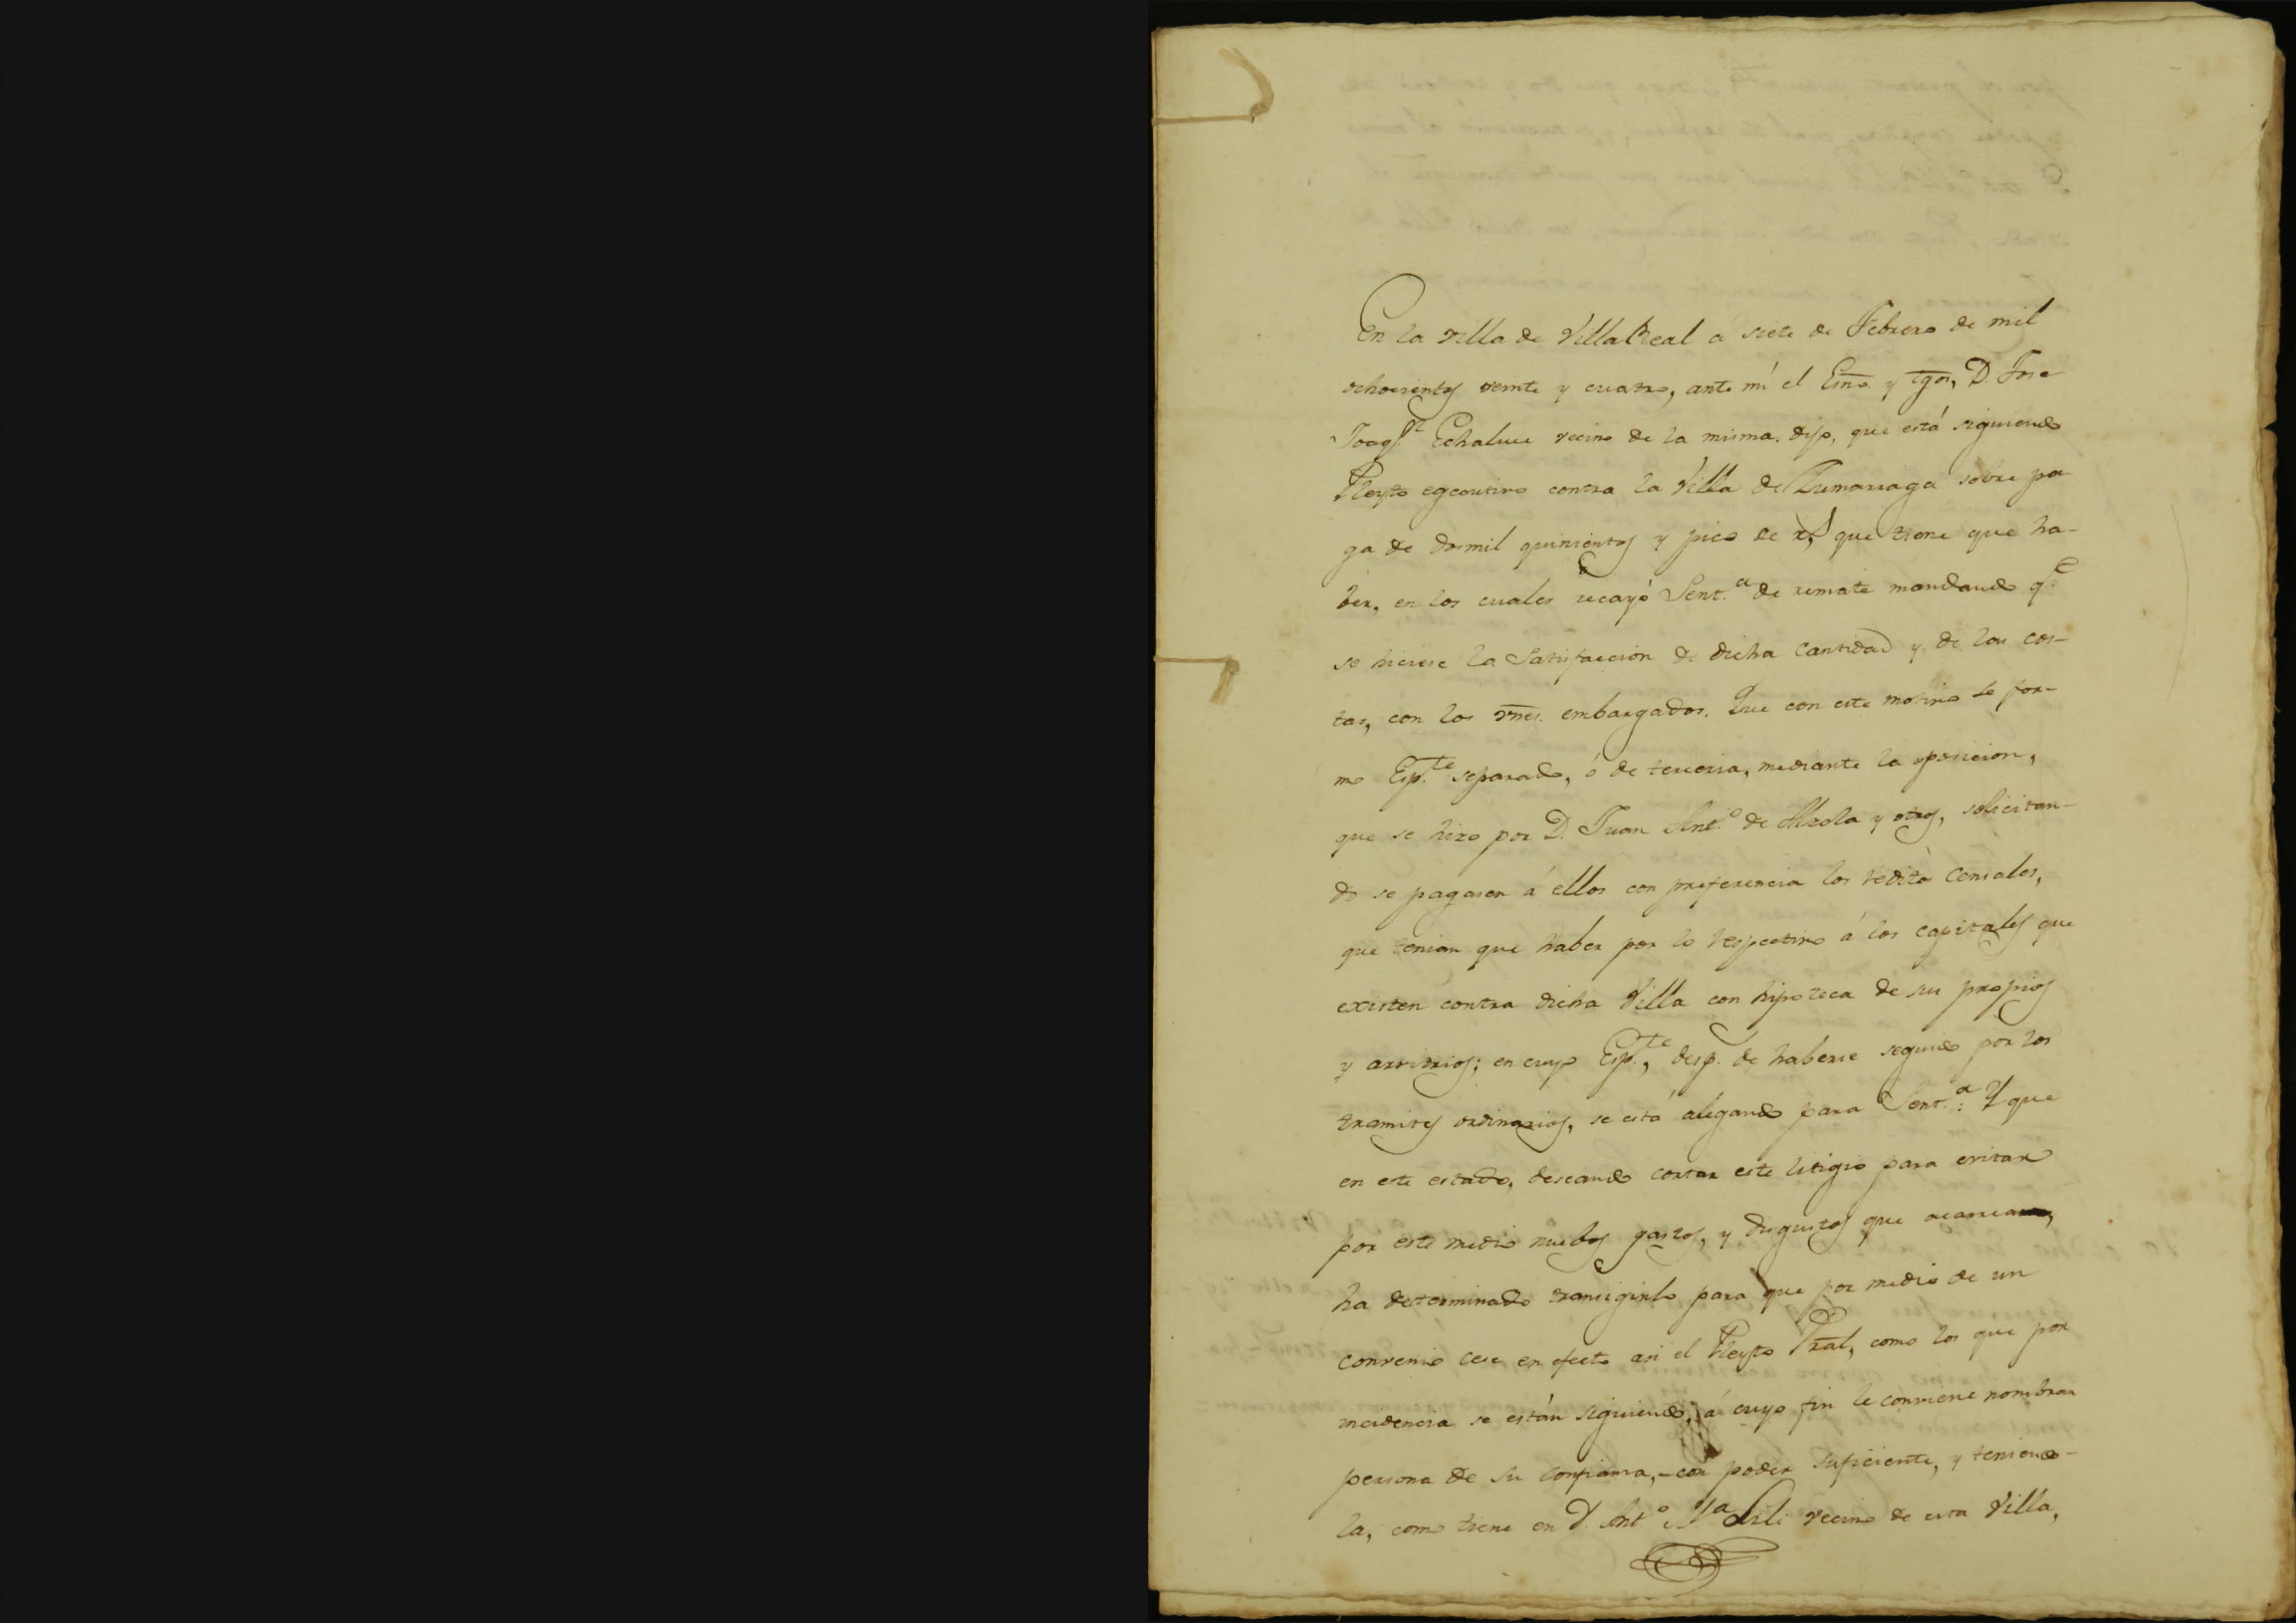 En la villa de Villa Real á siete de Febrero de mil
ochocientos veinte y cuatro, ante mí el Esno. y tgos, D. Jose
Joaqn. Echaluce vecino de la misma. dijo, que está siguiendo
Pleyto egecutivo contra la Villa de Zumarraga sobre pa
ga de dosmil quinientos y pico de rs, que tiene que ha-
ber, en los cuales recayó Sent.a de remate mandando q.e
se hiciese la Satisfaccion de dicha Cantidad y de las cos-
tas, con los vnes. embargados. Que con este motivo se for-
mo Esp.te separado, ó de terceria, mediante la oposicion,
que se hizo por D. Juan Ant.o de Alzola y otros, solicitan-
do se pagasen á ellos con preferencia los reditos Censales,
que tenian que haber por lo respectivo á los capitales que
existen contra dicha Villa con hipoteca de sus propios
y arvitrios; en cuyo Esp.te, desp. de haberse seguido por los
tramites ordinarios, se está alegando para Sent.a: Y que
en este estado, deseando cortar este litigio para evitar
por este medio nuebos gastos, y disgustos que
ha determinado transigirlo para que por medio de un
convenio cese en efecto asi el Pleyto Pral, como los que por
incidencia se están siguiendo; á cuyo fin le conviene nombrar
persona de su confianza, con poder suficiente, y teniendo-
la, como tiene en D. Ant.o M.a Lili vecino de esta Villa,